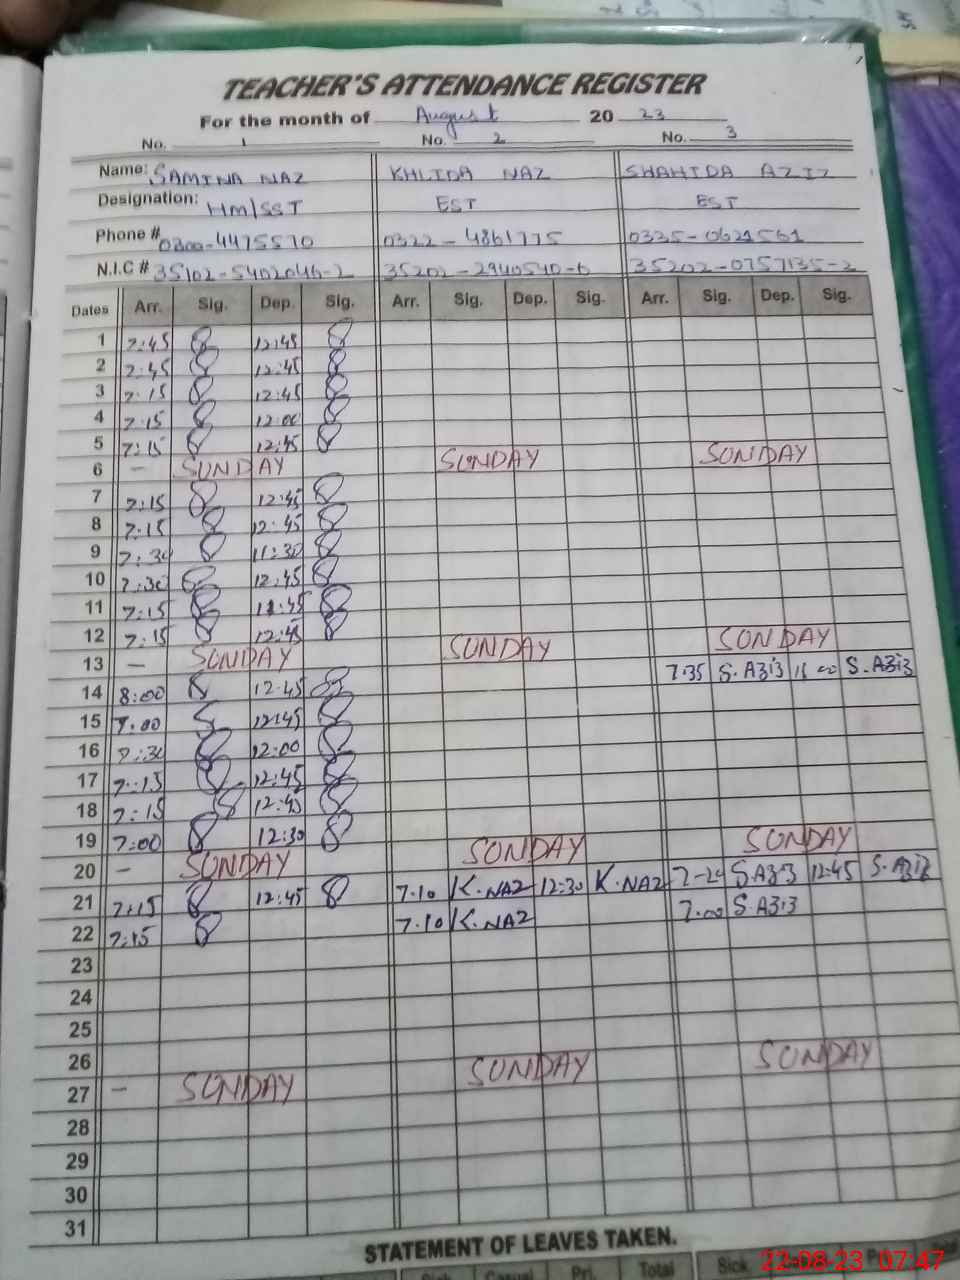 TEACHER'S ATTENDANCE REGISTER
For the month of August 20 23
No. 1 No. 2 No. 3
Name: SAMINA NAZ KHLIDA NAZ SHAHIDA AZIZ
Designation: HM/SST EST EST
Phone # 0300-4475570 0322-4861775 0335-0621561
N.I.C # 35102-5402046-2 35202-2940540-6 35202-0757135-2
Dates Arr. Sig. Dep. Sig. Arr. Sig. Dep. Sig. Arr. Sig. Dep. Sig.
1 7:45 12:45
2 7:45 12:45
3 7:15 12:45
4 7:15 12:00
5 7:15 12:45
6 - SUNDAY SUNDAY SUNDAY
7 7:15 12:45
8 7:15 12:45
9 7:30 11:30
10 7:30 12:45
11 7:15
12 7:15 12:45
13 - SUNDAY SUNDAY SUNDAY
14 8:00 12:45 7:35 S.AZiZ S.AZiZ
15 7:00 12:45
16 7:30 12:00
17 7:15 12:45
18 7:15
19 7:00 12:30
20 - SUNDAY SUNDAY SUNDAY
21 7:15 12:45 7.10 K.NAZ 12:30 K.NAZ S.AZiZ 12:45 S.AZiZ
22 7:15 7.10 K.NAZ 7.00 S.AZiZ
23
24
25
26
27 - SUNDAY SUNDAY SUNDAY
28
29
30
31
STATEMENT OF LEAVES TAKEN.
Sick Casual Pri. Total Sick
22-08-23 07:47